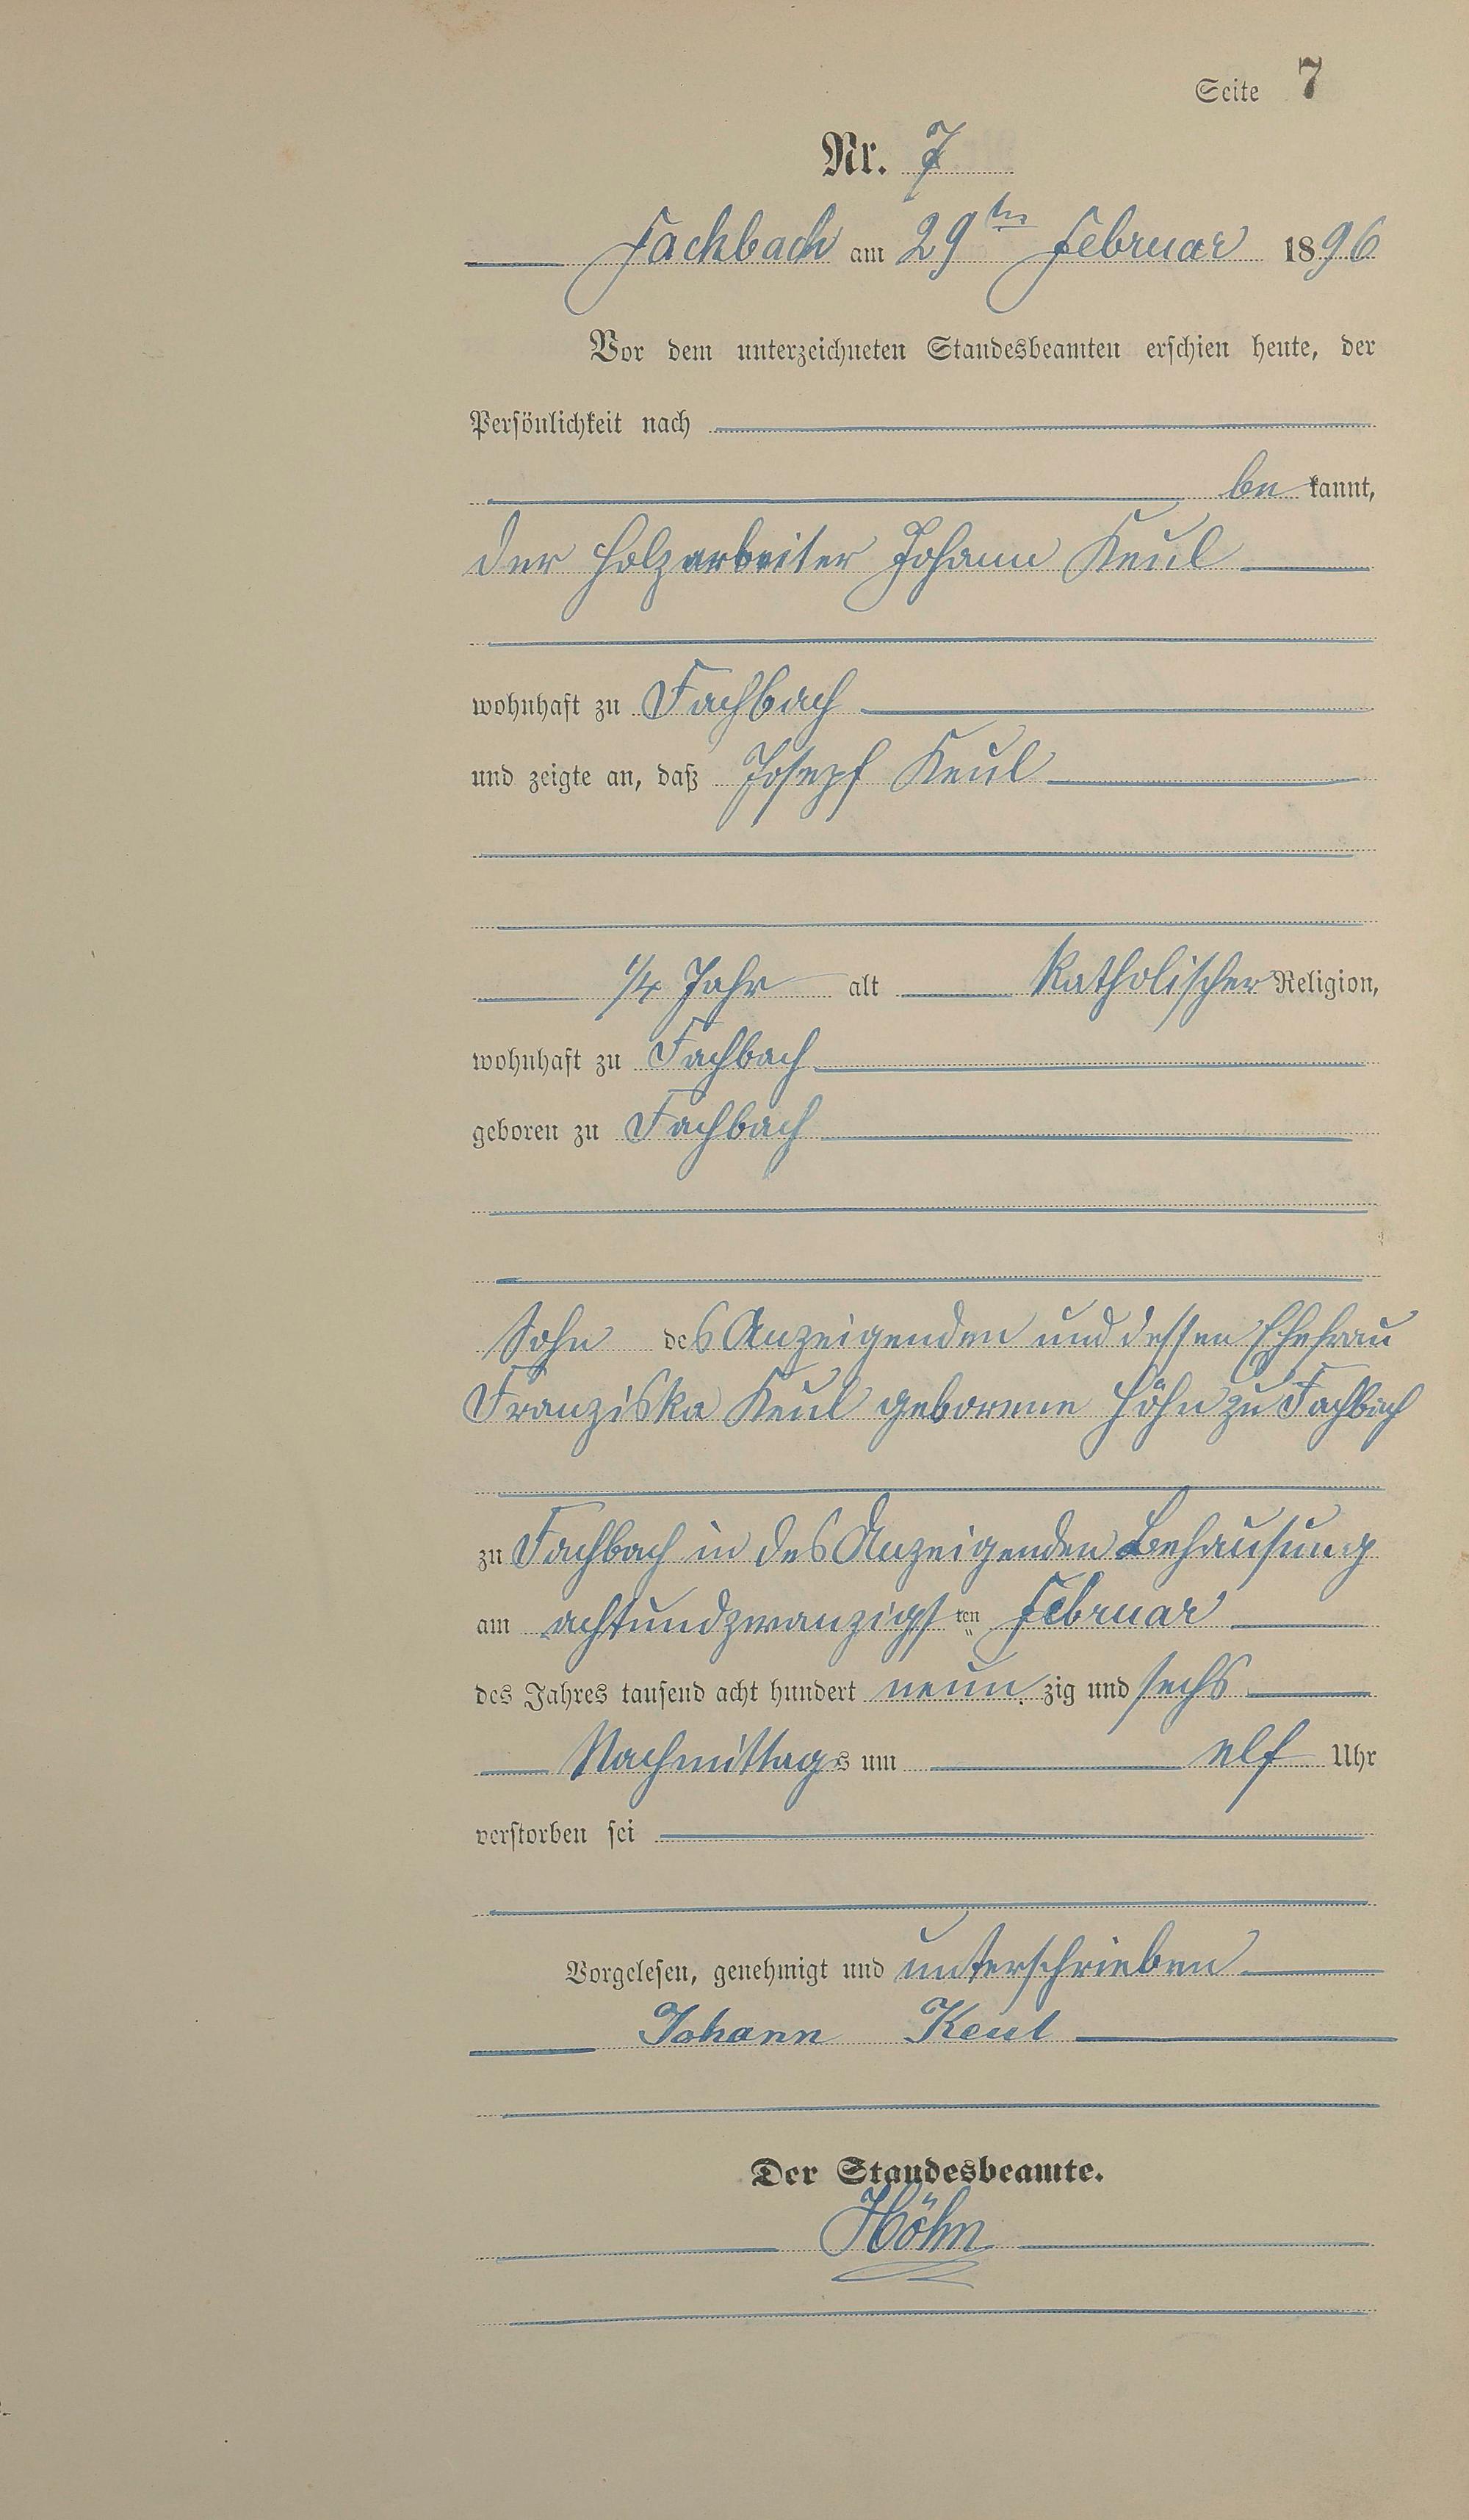 Seite 7
Nr. 7
Fachbach am 29ten Februar 1896
Vor dem unterzeichneten Standesbeamten erschien heute, der
Persönlichkeit nach
be kannt,
der Holzarbeiter Johann Keul
wohnhaft zu Fachbach
und zeigte an, daß Joseph Keul
1/4 Jahr alt katholischer Religion,
wohnhaft zu Fachbach
geboren zu Fachbach
Sohn des Anzeigenden und dessen Ehefrau
Franziska Keul geborene Höhn zu Fachbach
zu Fachbach in des Anzeigenden Behausung
am achtundzwanzigsten Februar
des Jahres tausend acht hundert neun zig und sechs
Nachmittags um elf Uhr
verstorben sei
Vorgelesen, genehmigt und unterschrieben
Johann Keul
Der Standesbeamte.
Höhn